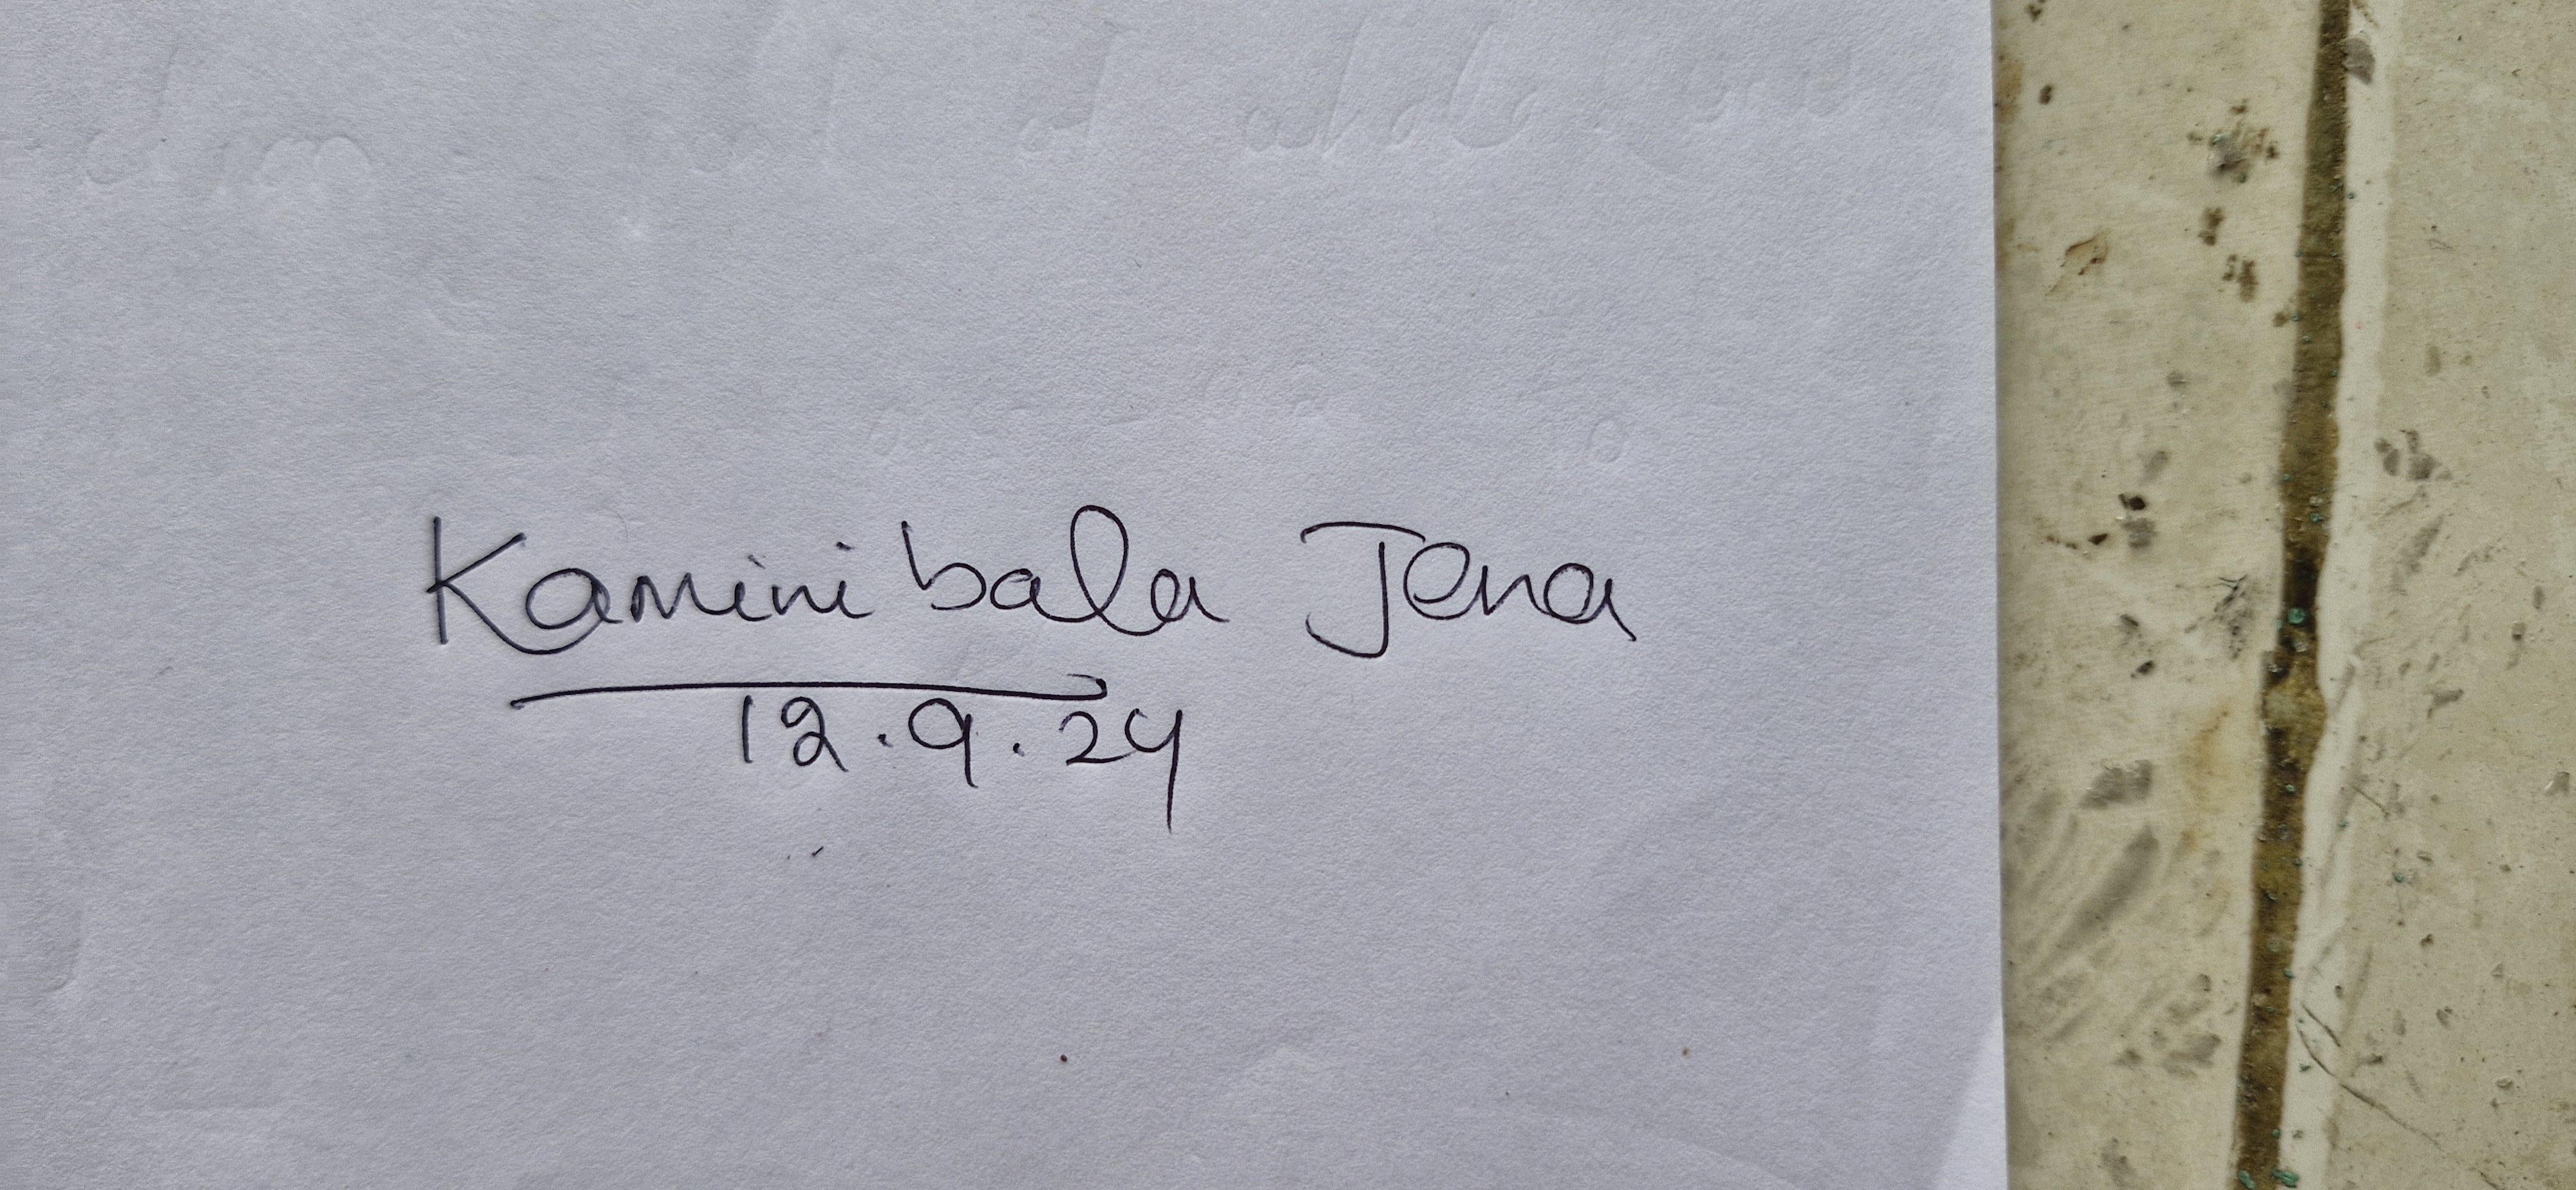 Kamini bala Jena
12.9.24